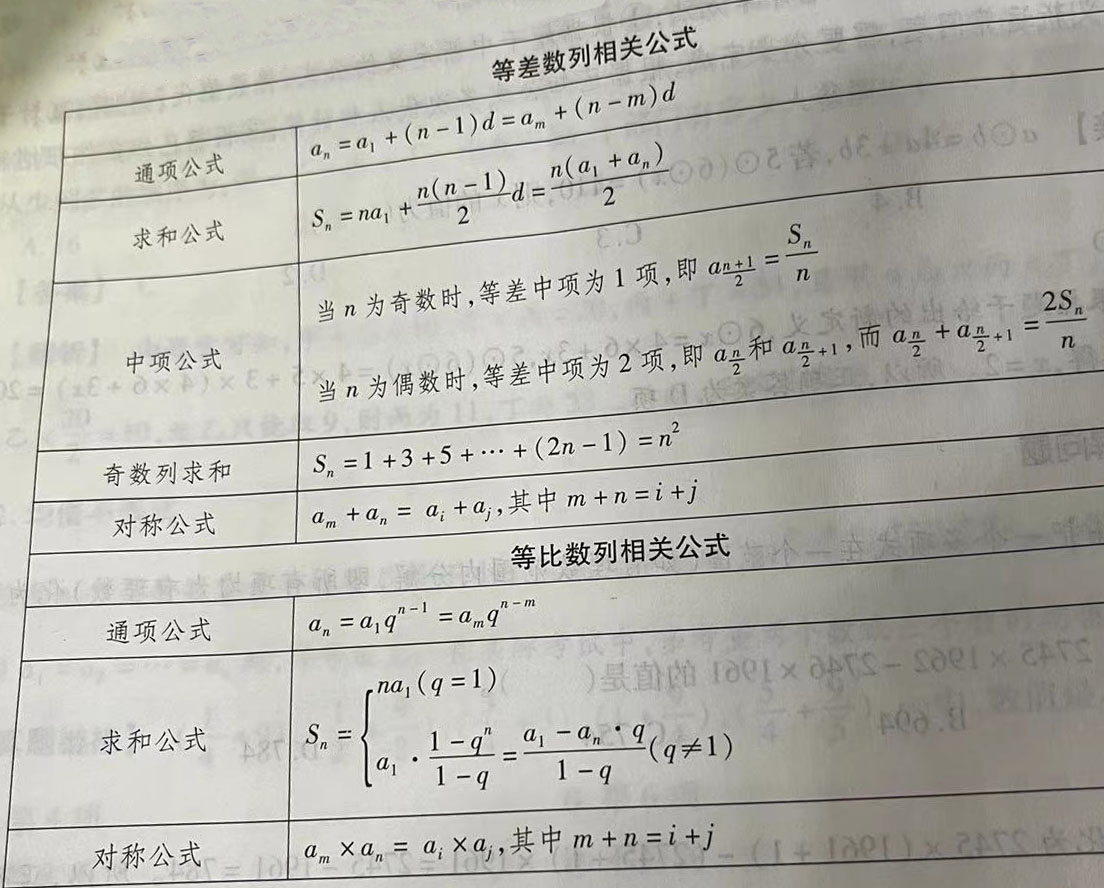 等差数列相关公式
通项公式 aₙ=a₁+(n-1)d=aₘ+(n-m)d
求和公式 Sₙ=na₁+\frac{n(n-1)}{2}d=\frac{n(a₁+aₙ)}{2}
中项公式
当n为奇数时,等差中项为1项,即 a_{\frac{n+1}{2}}=\frac{Sₙ}{n}
当n为偶数时,等差中项为2项,即 a_{\frac{n}{2}}和a_{\frac{n}{2}+1},而a_{\frac{n}{2}}+a_{\frac{n}{2}+1}=\frac{2Sₙ}{n}
奇数列求和 Sₙ=1+3+5+…+(2n-1)=n²
对称公式 aₘ+aₙ=aᵢ+aⱼ,其中m+n=i+j
等比数列相关公式
通项公式 aₙ=a₁qⁿ⁻¹=aₘqⁿ⁻ᵐ
求和公式 Sₙ={
na₁(q=1)
a₁·\frac{1-qⁿ}{1-q}=\frac{a₁-aₙ·q}{1-q}(q≠1)
对称公式 aₘ×aₙ=aᵢ×aⱼ,其中m+n=i+j